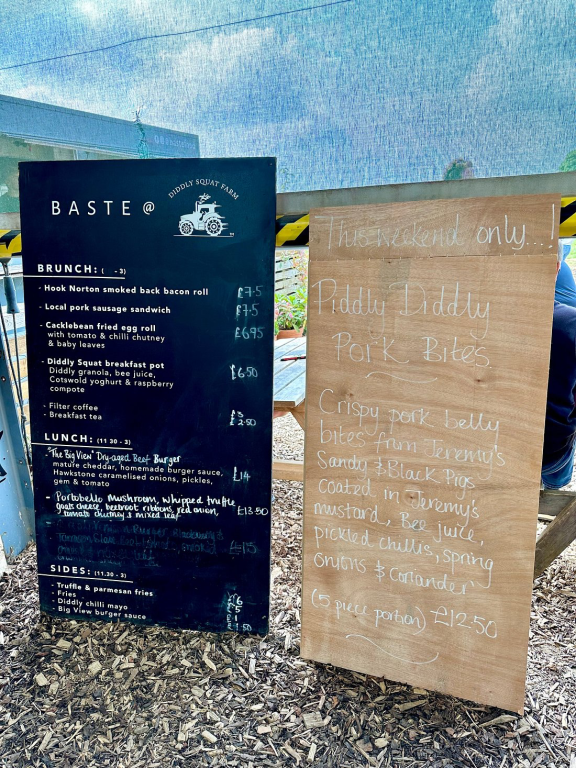 DIDDLY SQUAT FARM
BASTE @
BRUNCH: ( -3)
- Hook Norton smoked back bacon roll £7.5
- Local pork sausage sandwich £7.5
- Cacklebean fried egg roll £6.95
with tomato & chilli chutney
& baby leaves
- Diddly Squat breakfast pot £6.50
Diddly granola, bee juice,
Cotswold yoghurt & raspberry
compote
- Filter coffee £3
- Breakfast tea £2.50
LUNCH: (11.30 - 3)
"The Big View" Dry-aged Beef Burger
mature cheddar, homemade burger sauce,
Hawkstone caramelised onions, pickles, £14
gem & tomato
- Portobello Mushroom, whipped truffle
goats cheese, beetroot ribbons, red onion, £13.50
tomato chutney & mixed leaf
£15
SIDES: (11.30 - 3)
- Truffle & parmesan fries £6
- Fries £5
- Diddly chilli mayo £1
- Big View burger sauce £1.50
This weekend only...!
Piddly Diddly
Pork Bites
Crispy pork belly
bites from Jeremy's
Sandy & Black Pigs
coated in Jeremy's
mustard, Bee juice,
pickled chillis, spring
onions & coriander
(5 piece portion) £12.50